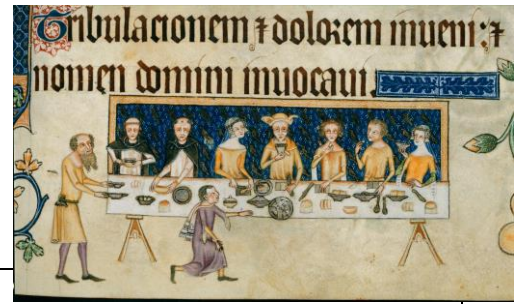 Tribulacionem ⁊ dolorem inueni: ⁊
nomen domini inuocaui.